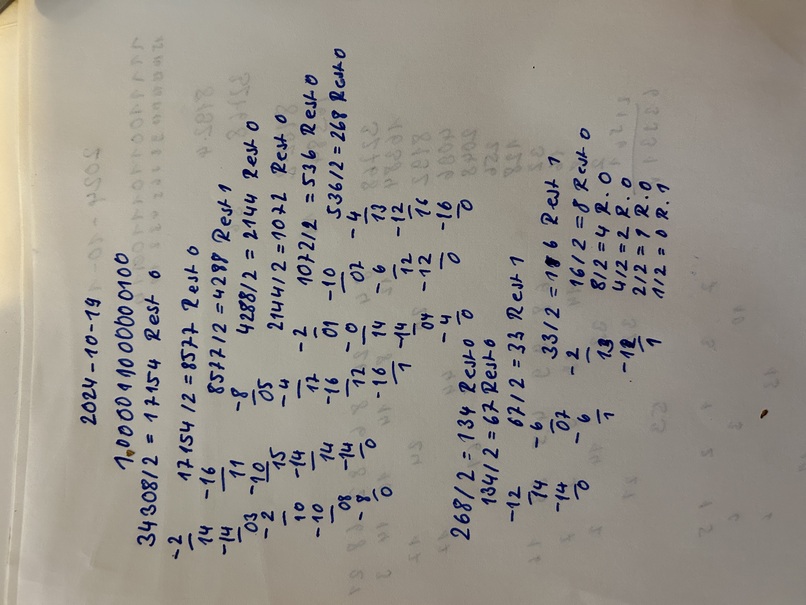 2024-10-19
1.0000110000000100
34308/2 = 17154 Rest 0
-2 17154/2=8577 Rest 0
14 -16 8577/2=4288 Rest 1
-14 11 -8 4288/2=2144 Rest 0
03 -10 05 2144/2=1072 Rest 0
-2 15 -4 1072/2=536 Rest 0
10 -14 17 -2 536/2=268 Rest 0
-10 14 -16 01 -10 -4
08 -14 12 -0 07 13
-8 0 -16 14 -6 -12
0 1 -14 12 16
04 -12 -16
-4 0 0
0
268/2 = 134 Rest 0
134/2=67 Rest 0
-12 67/2=33 Rest 1
14 -6 33/2=16 Rest 1
-14 07 -2 16/2=8 Rest 0
0 -6 13 8/2=4 R. 0
1 -12 4/2=2 R. 0
1 2/2=1 R. 0
1/2=0 R. 1